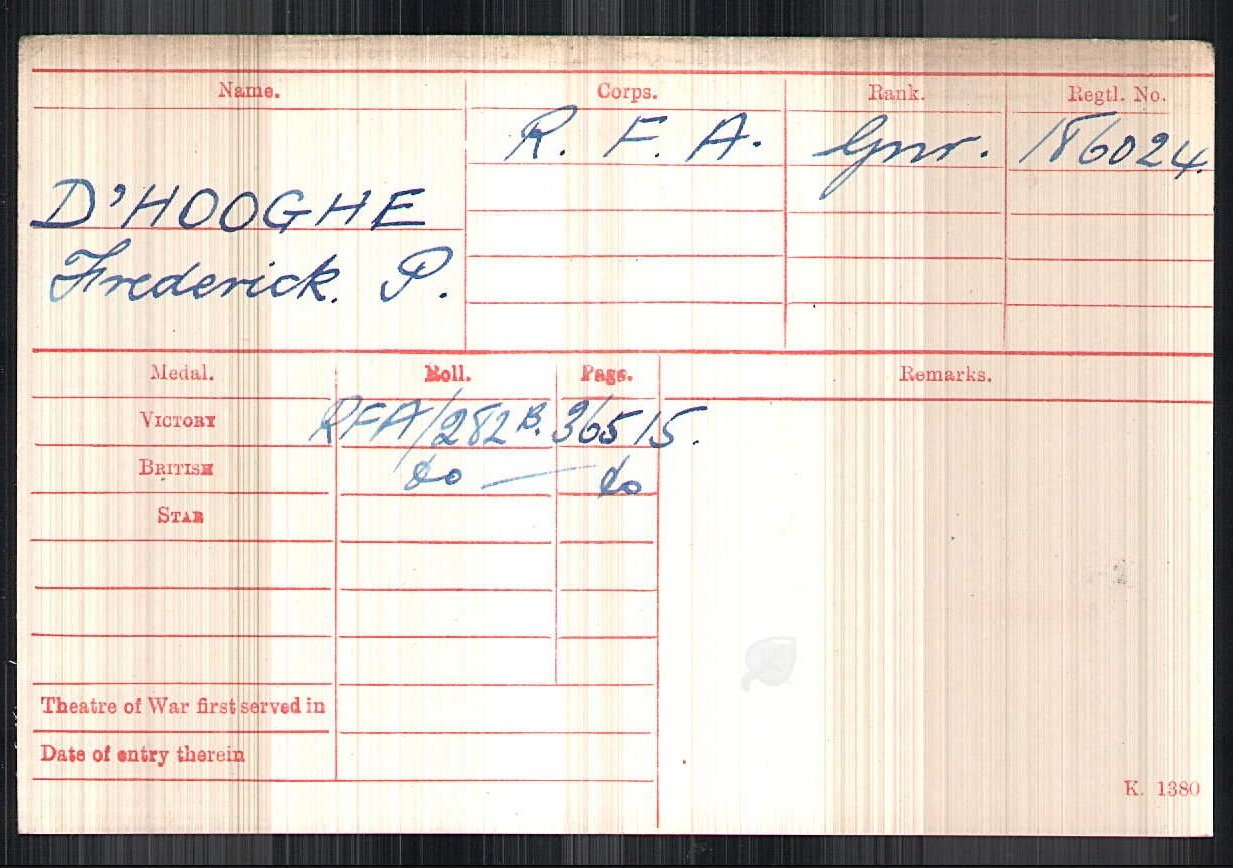 Name. Corps. Rank. Regtl. No.
R. F. A. Gnr. 186024.
D'HOOGHE
Frederick. P.
Medal. Roll. Page. Remarks.
VICTORY RFA/282 B. 36515.
BRITISH do — do
STAR
Theatre of War first served in
Date of entry therein
K. 1380